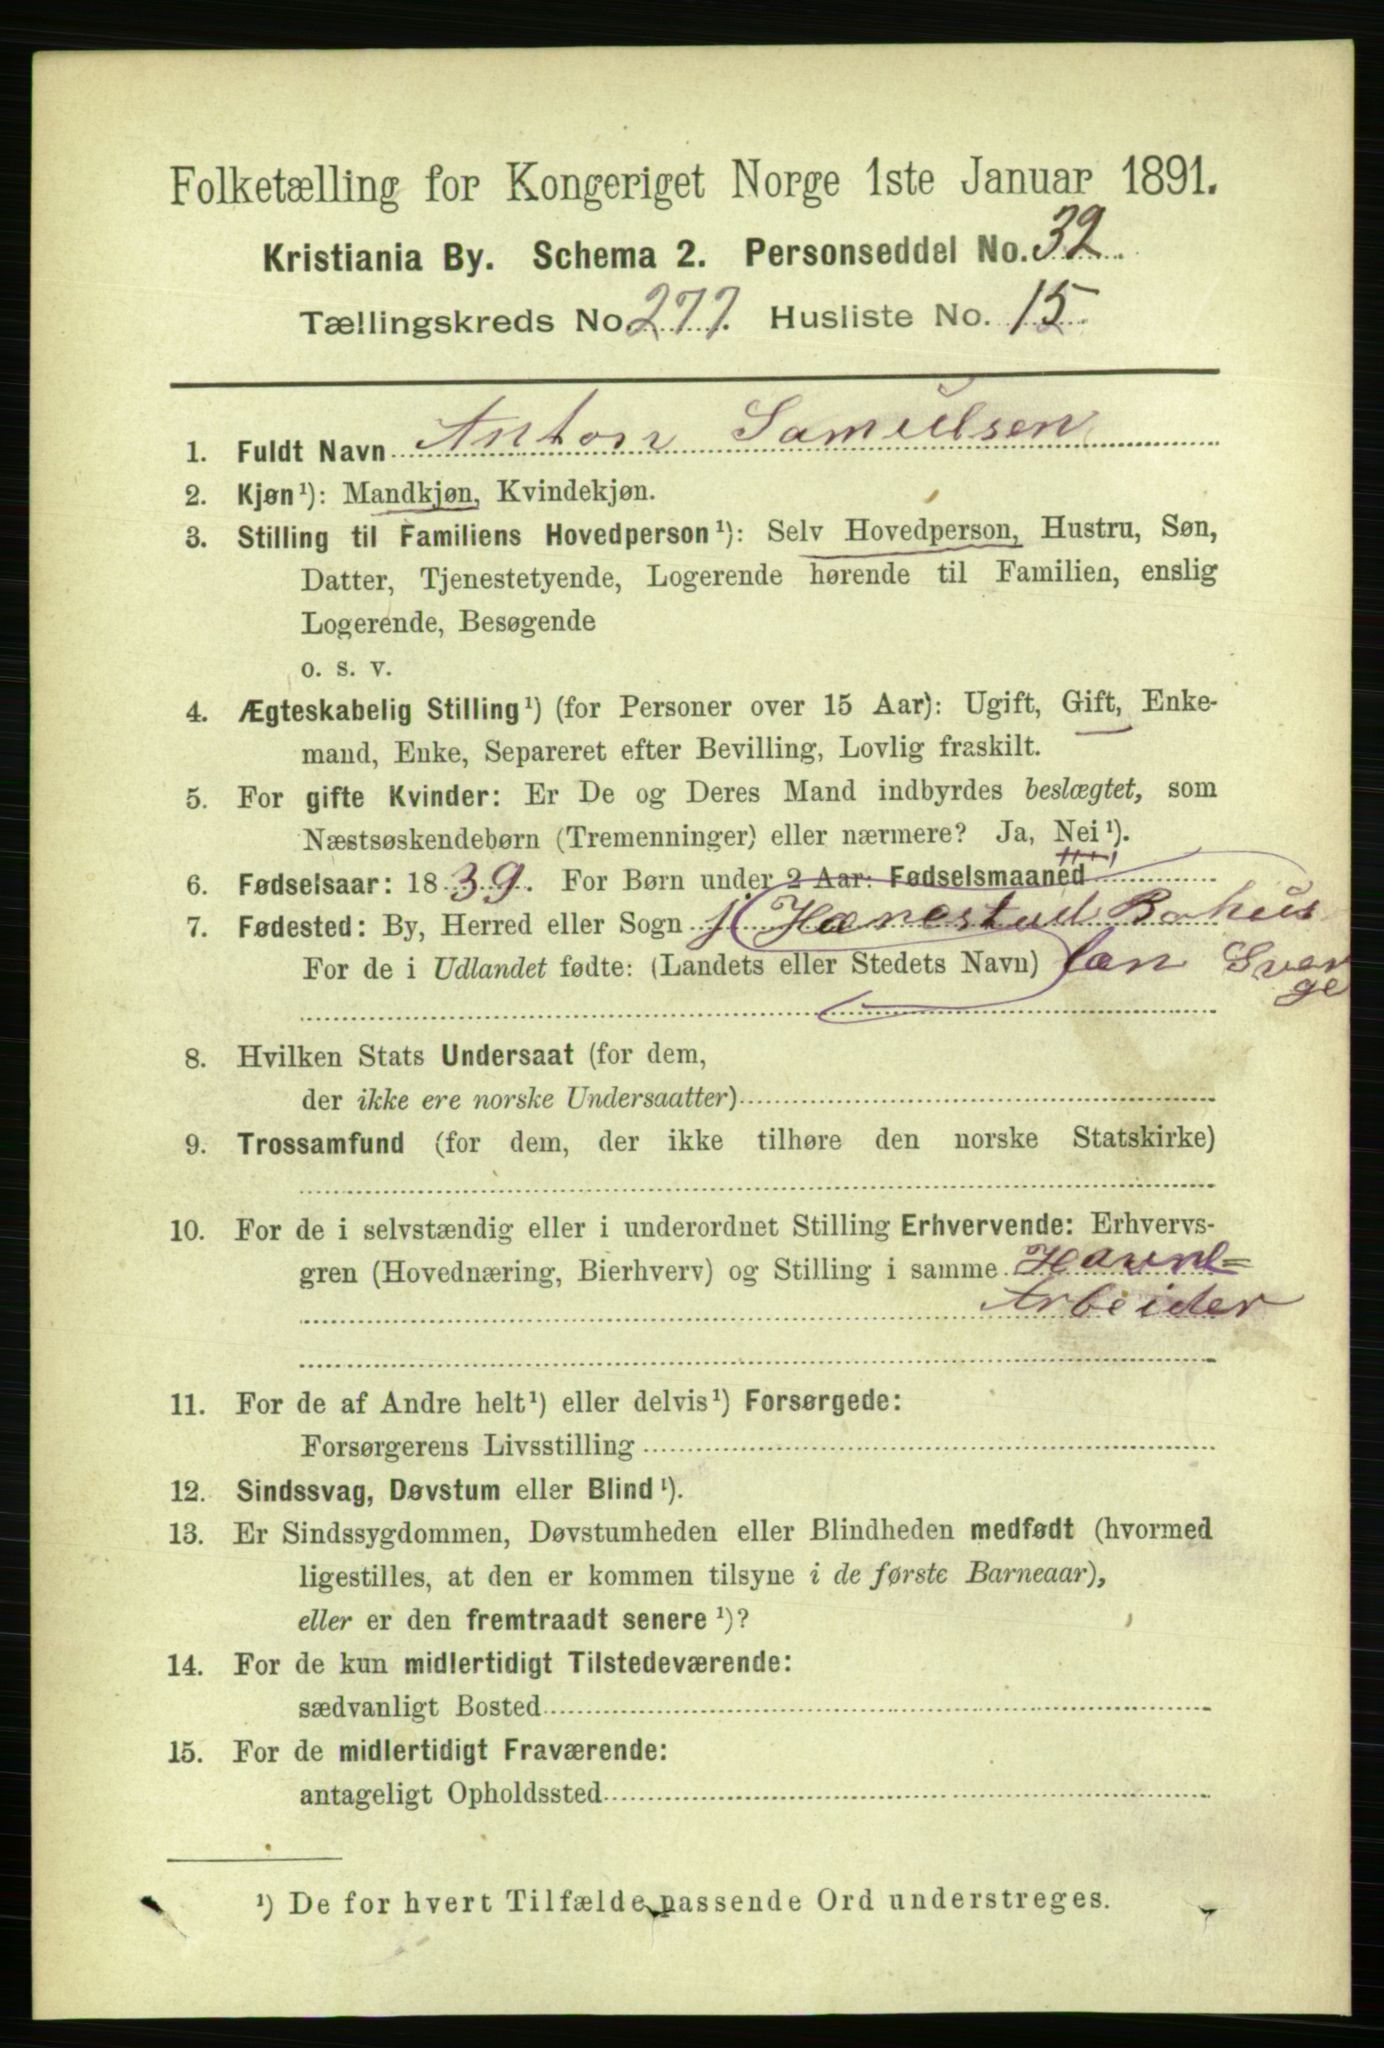 Folketælling for Kongeriget Norge 1ste Januar 1891.
Kristiania By. Schema 2. Personseddel No. 32
Tællingskreds No. 277. Husliste No. 15
1. Fuldt Navn Anton Samuelsen
2. Kjøn¹): Mandkjøn, Kvindekjøn.
3. Stilling til Familiens Hovedperson¹): Selv Hovedperson, Hustru, Søn,
Datter, Tjenestetyende, Logerende hørende til Familien, enslig
Logerende, Besøgende
o. s. v.
4. Ægteskabelig Stilling¹) (for Personer over 15 Aar): Ugift, Gift, Enke-
mand, Enke, Separeret efter Bevilling, Lovlig fraskilt.
5. For gifte Kvinder: Er De og Deres Mand indbyrdes beslægtet, som
Næstsøskendebørn (Tremenninger) eller nærmere? Ja, Nei¹).
6. Fødselsaar: 1839. For Børn under 2 Aar: Fødselsmaaned
7. Fødested: By, Herred eller Sogn Hanestad Bohus
For de i Udlandet fødte: (Landets eller Stedets Navn) län Sver
ge
8. Hvilken Stats Undersaat (for dem,
der ikke ere norske Undersaatter)
9. Trossamfund (for dem, der ikke tilhøre den norske Statskirke)
10. For de i selvstændig eller i underordnet Stilling Erhvervende: Erhvervs-
gren (Hovednæring, Bierhverv) og Stilling i samme Havne=
Arbeider
11. For de af Andre helt¹) eller delvis¹) Forsørgede:
Forsørgerens Livsstilling
12. Sindssvag, Døvstum eller Blind¹).
13. Er Sindssygdommen, Døvstumheden eller Blindheden medfødt (hvormed
ligestilles, at den er kommen tilsyne i de første Barneaar),
eller er den fremtraadt senere¹)?
14. For de kun midlertidigt Tilstedeværende:
sædvanligt Bosted
15. For de midlertidigt Fraværende:
antageligt Opholdssted
¹) De for hvert Tilfælde passende Ord understreges.